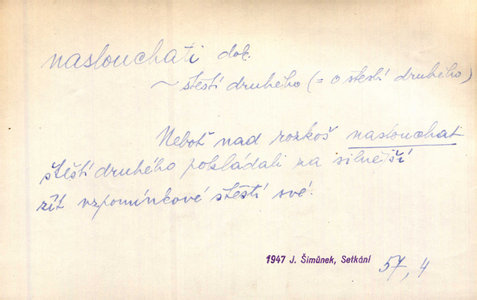 naslouchati dok.
~ štěstí druhého (= o štěstí druhého)
Neboť nad rozkoš naslouchat
štěstí druhého pokládali za silnější
zít vzpomínkové štěstí své.
1947 J. Šimůnek, Setkání
57, 4